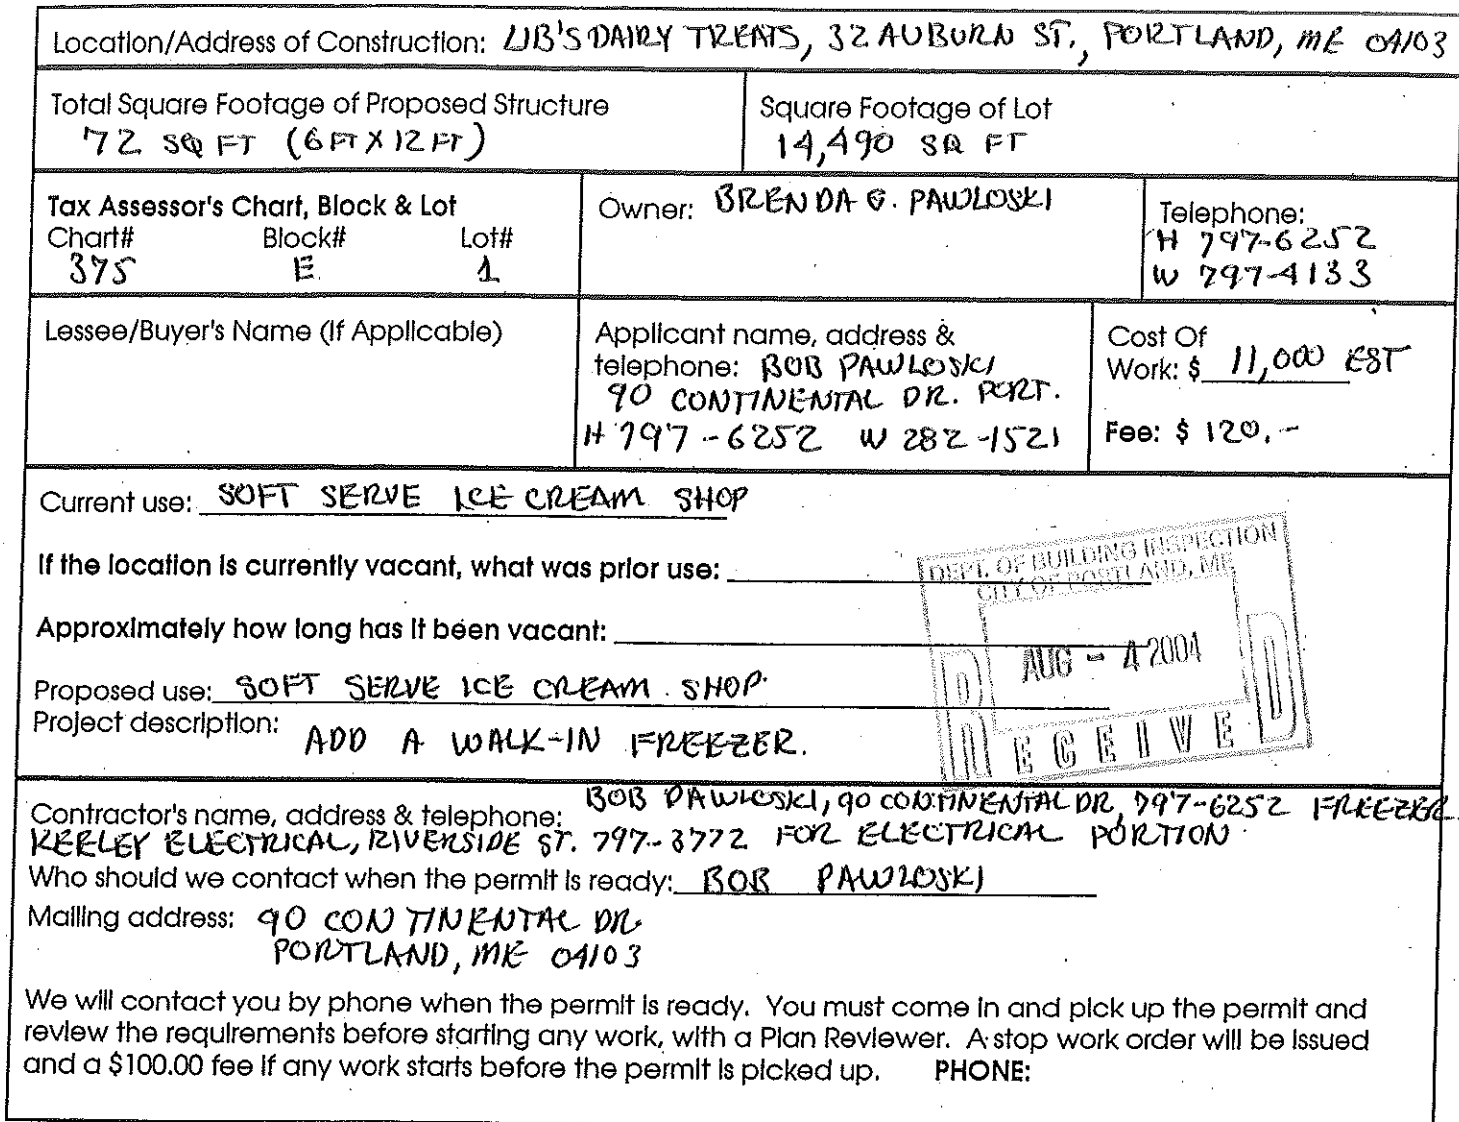 Location/Address of Construction: LIB'S DAIRY TREATS, 32 AUBURN ST., PORTLAND, ME 04103
Total Square Footage of Proposed Structure
72 SQ FT (6 FT X 12 FT)
Square Footage of Lot
14,490 SQ FT
Tax Assessor's Chart, Block & Lot
Chart# Block# Lot#
375 E 1
Owner: BRENDA G. PAWLOSKI
Telephone:
H 797-6252
W 797-4133
Lessee/Buyer's Name (If Applicable)
Applicant name, address &
telephone: BOB PAWLOSKI
90 CONTINENTAL DR. PORT.
H 797-6252 W 282-1521
Cost Of
Work: $ 11,000 EST
Fee: $ 120.-
Current use: SOFT SERVE ICE CREAM SHOP
If the location is currently vacant, what was prior use:
Approximately how long has it been vacant:
Proposed use: SOFT SERVE ICE CREAM SHOP.
Project description: ADD A WALK-IN FREEZER.
DEPT. OF BUILDING INSPECTION
CITY OF PORTLAND, ME
AUG - 4 2004
RECEIVED
Contractor's name, address & telephone: BOB PAWLOSKI, 90 CONTINENTAL DR, 797-6252 FREEZER.
KEELEY ELECTRICAL, RIVERSIDE ST. 797-3772 FOR ELECTRICAL PORTION
Who should we contact when the permit is ready: BOB PAWLOSKI
Mailing address: 90 CONTINENTAL DR
PORTLAND, ME 04103
We will contact you by phone when the permit is ready. You must come in and pick up the permit and
review the requirements before starting any work, with a Plan Reviewer. A stop work order will be issued
and a $100.00 fee if any work starts before the permit is picked up. PHONE: